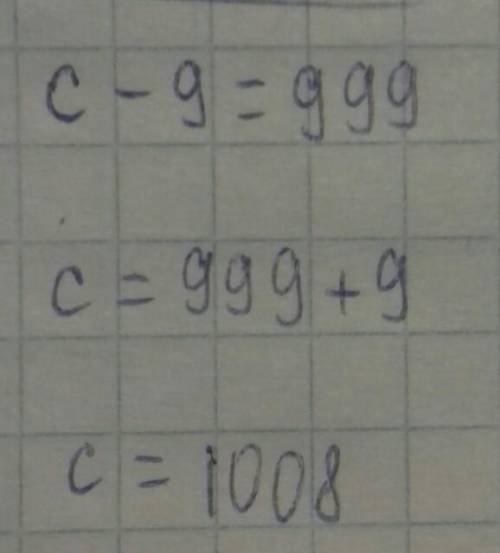 c - 9 = 999
c = 999 + 9
c = 1008